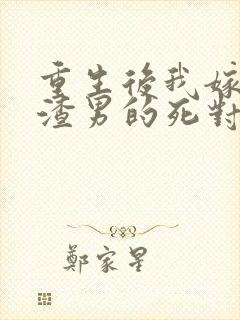 重生後我嫁
渣男的死對
鄭家星